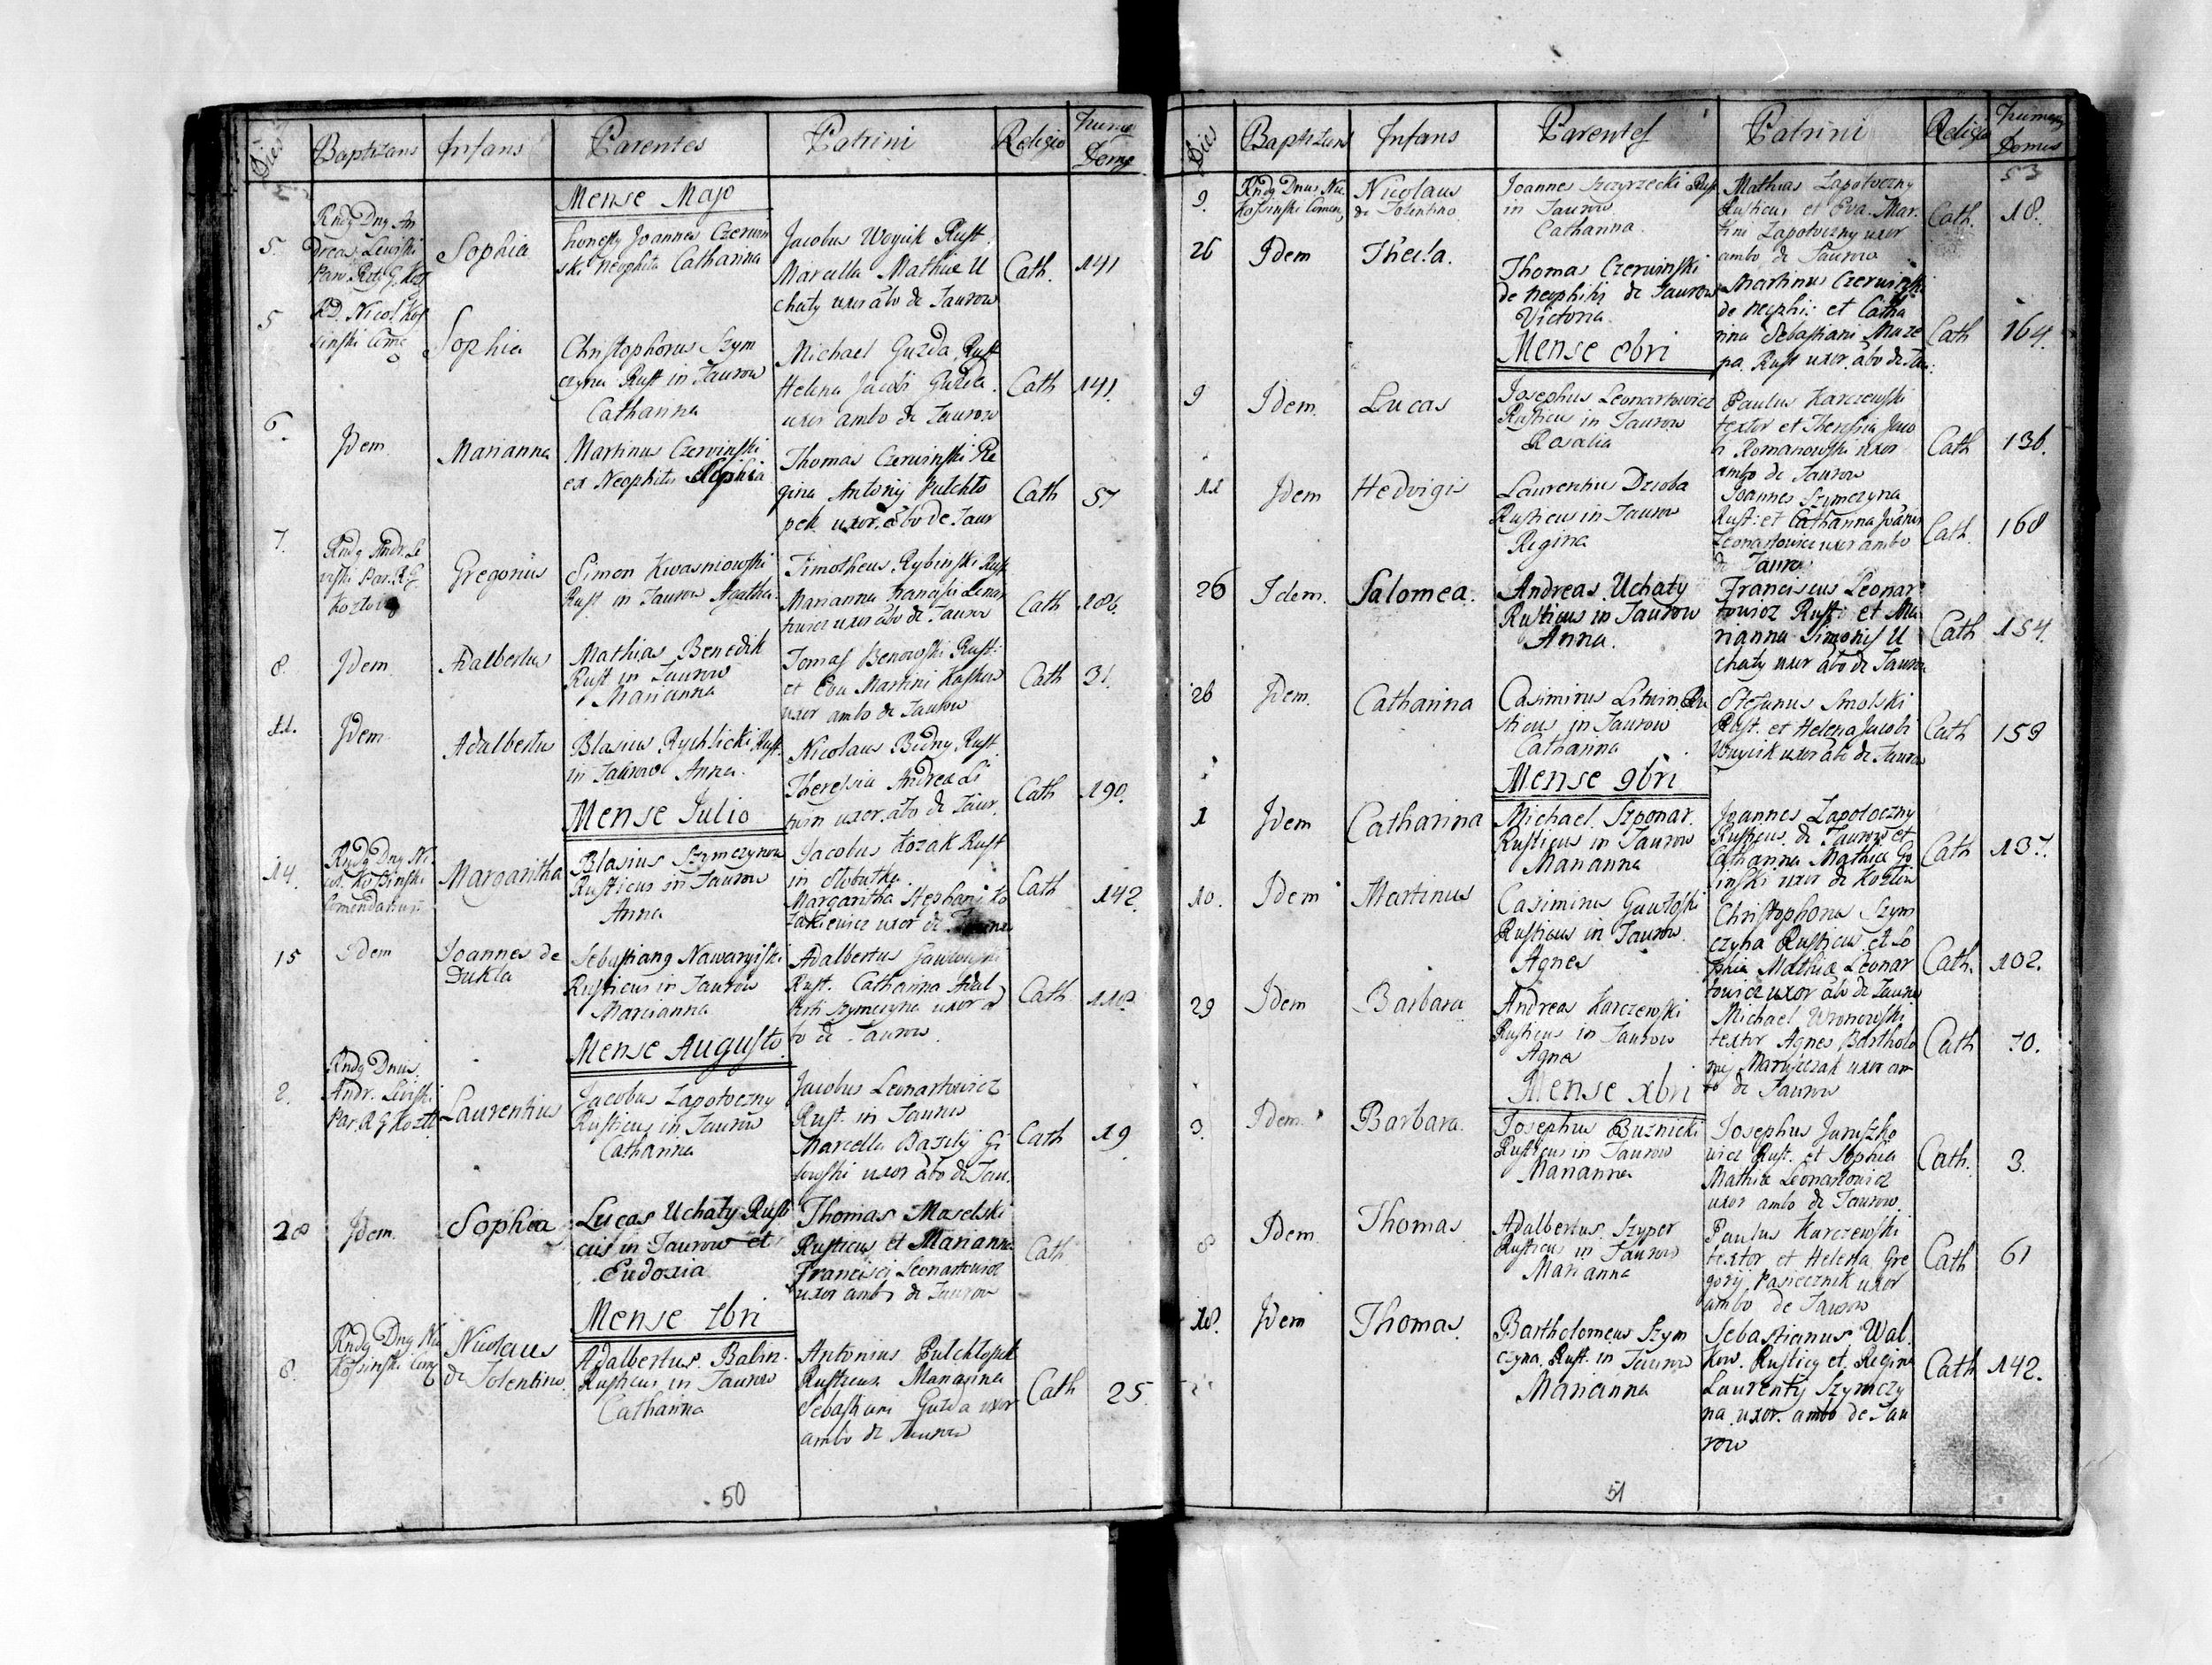 Dies Baptizans Infans Parentes Patrini Religio Numerus Domus
Mense Majo
5. Rndg Dng An
dreas Leviski
Par. Rit. G. Koz
Sophia
honesty Joannes Czerwin
ski Neophita Catharina
Jacobus Woycik Rust.
Marcella Mathiæ U
chaty uxor abo de Taurow
Cath. 141
5 RD. Nicol Kos
sinski Come
Sophia
Christophorus Szym
czyna Rust in Taurow
Catharina
Michael Guzda Rust
Helena Jacobi Guzda
uxor ambo de Taurow
Cath 141.
6. Idem Marianna
Martinus Czerwinski
ex Neophitis Sophia
Thomas Czerwinski Re
gina Antonij Pulchto
pek uxor abo de Taur
Cath 57
7. Rndg Andr. Le
viski Par. R. G.
Kozlov
Gregorius
Simon Kwasniowski
Rust in Taurow Agatha.
Timotheus Rybinski Rust
Marianna Francisci Leonar
towicz uxor abo de Taurow
Cath 186.
8. Idem Adalbertus
Mathias Benedik
Rust in Taurow
Marianna
Tomas Benowski Rust.
et Eva Martini Kaskow
uxor ambo de Taurow
Cath 31.
11. Idem Adalbertus
Blasius Rychlicki Rust.
in Taurow Anna.
Nicolaus Bidny Rust.
Theressia Andreæ Li
twin uxor abo de Taur.
Cath 190.
Mense Julio
14. Rndg Dng Ni
col. Kossinski
Comendarius
Margaritha
Blasius Szymczyna
Rusticus in Taurow
Anna
Jacobus Kozak Rust
in
Margaritha Stephani Ko
zakiewicz uxor de Taurow
Cath 142.
15 Idem Joannes de
Dukla
Sebastiang Nawaryiski
Rusticus in Taurow
Marianna
Adalbertus Gawlowski
Rust. Catharina Adal
berti Szymczyna uxor a
bo de Taurow.
Cath. 112
Mense Augusto
2. Rndg Dnus
Andr. Leviski
Par. R G Kozl.
Laurentius
Jacobus Zapotoczny
Rusticus in Taurow
Catharina
Jacobus Leonartowicz
Rust. in Taurow
Marcella Basilij Gi
uxor abo de Tau.
Cath 19
28 Idem. Sophia
Lucas Uchaty Rusti
cus in Taurow et
Eudoxia
Thomas Maselski
Rusticus et Marianna
Francisci Leonartowicz
uxor ambo de Taurow
Cath
Mense 7bri
8. Rndg Dng Nic
Kossinski Comg
Nicolaus
de Tolentino.
Adalbertus Balin.
Rusticus in Taurow
Catharina
Antonius Pulchtopek
Rusticus Marianna
Sebastiani Guzda uxor
ambo de Taurow
Cath 25.
50
Dies Baptizans Infans Parentes Patrini Religio Numerus Domus
53
9. Rndg Dnus Nic.
Kossinski Comen.
Nicolaus
de Tolentino
Joannes Szczyrzecki Rust
in Taurow
Catharina.
Mathias Zapotoczny
Rusticus et Eva Mar.
tini Zapotoczny uxor
ambo de Taurow
Cath. 18.
26 Idem Thecla.
Thomas Czerwinski
de Neophitis de Taurow
Victoria
Martinus Czerwinski
de Nephi: et Catha
rina Sebastiani Maze
pa Rust uxor abo de Tau:
Cath 164.
Mense 8bri
9 Idem Lucas
Josephus Leonartowicz
Rusticus in Taurow
Rosalia
Paulus Karczewski
textor et Theressia Jaco
bi Romanowski uxor
ambo de Taurow
Cath 136.
11 Idem Hedvigis
Laurentius Dzioba
Rusticus in Taurow
Regina
Joannes Szymczyna
Rust: et Catharina Joanis
Leonartowicz uxor ambo
de Taurow
Cath. 168
26 Idem. Salomea.
Andreas Uchaty
Rusticus in Taurow
Anna.
Franciscus Leonar
towicz Rust: et Ma
rianna Simonis U
chaty uxor abo de Taurow
Cath 154.
26 Idem. Catharina
Casimirus Litwin Ru
sticus in Taurow
Catharina
Stefanus Smolski
Rust. et Helena Jacobi
Woycik uxor abo de Taurow
Cath 159
Mense 9bri
1 Idem Catharina
Michael Szponar.
Rusticus in Taurow
Marianna
Joannes Zapotoczny
Rusticus de Taurow et
Catharina Mathiæ Go
linski uxor de Kozlow
Cath 137.
10. Idem Martinus
Casimirus Gawloski
Rusticus in Taurow.
Agnes
Christophorus Szym
czyna Rusticus et So
phia Mathiæ Leonar
towicz uxor abo de Taurow
Cath. 102.
29 Idem Barbara
Andreas Karczewski
Rusticus in Taurow
Agnes
Michael Wronowski
textor Agnes Bartholo
mej Maruszczak uxor am
bo de Taurow
Cath 70.
Mense Xbri
3. Idem Barbara.
Josephus Buznicki
Rusticus in Taurow
Marianna
Josephus Juruszko
wicz Rust. et Sophia
Mathiæ Leonartowicz
uxor ambo de Taurow.
Cath. 3.
8 Idem Thomas
Adalbertus Szyper
Rusticus in Taurow
Marianna
Paulus Karczewski
textor et Helena Gre
gorij Pasiecznik uxor
ambo de Taurow
Cath 61
18. Idem Thomas
Bartholomeus Szym
czyna Rust. in Taurow
Marianna
Sebastianus Wal.
kow. Rusticg et Regina
Laurentij Szymczy
na uxor. ambo de Tau
row
Cath 142.
51